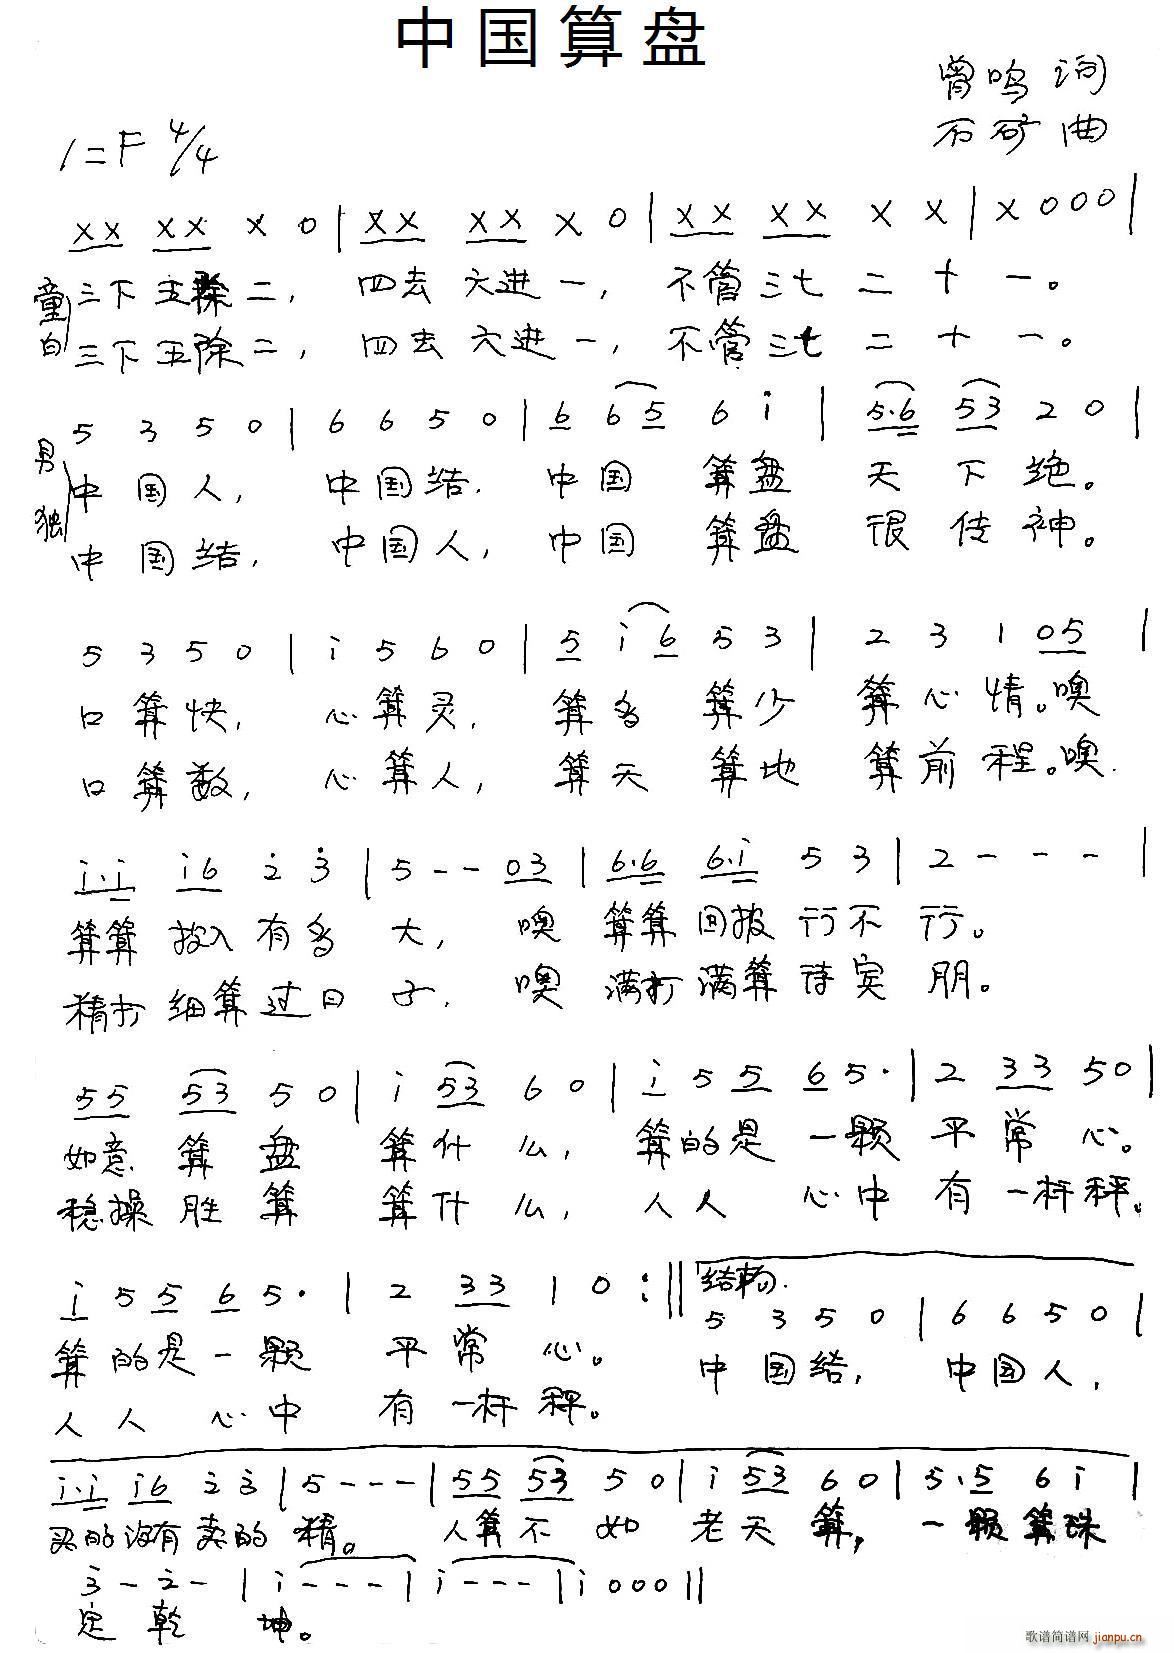 中国算盘
曾鸣 词
石矿 曲
1=F 4/4
XX XX X 0 | XX XX X 0 | XX XX X X | X 0 0 0 |
童白 三下五除二， 四去六进一， 不管三七二十一。
三下五除二， 四去六进一， 不管三七二十一。
5 3 5 0 | 6 6 5 0 | 6 6 5 6 i | 5·6 53 2 0 |
男独 中国人， 中国结， 中国 算盘 天下绝。
中国结， 中国人， 中国 算盘 很传神。
5 3 5 0 | i 5 6 0 | 5 i 6 5 3 | 2 3 1 05 |
口算快， 心算灵， 算多 算少 算心情。噢
口算数， 心算人， 算天 算地 算前程。噢
i·i i6 2̇ 3̇ | 5 - - 03 | 6·6 6·i 5 3 | 2 - - - |
算算 投入 有多 大， 噢 算算 回报 行不 行。
精打 细算 过日 子， 噢 满打 满算 待宾 朋。
55 53 5 0 | i 53 6 0 | i 5 5 6 5· | 2 33 5 0 |
如意 算 盘 算什 么， 算的是 一颗 平常 心。
稳操 胜 算 算什 么， 人人 心中 有一杆秤。
i 5 5 6 5· | 2 33 1 0 :|| 结束句. 5 3 5 0 | 6 6 5 0 |
算的是一颗 平常 心。 中国结， 中国人，
人人 心中 有一杆秤。
i·i i6 2̇ 3̇ | 5 - - - | 55 53 5 0 | i 53 6 0 | 5·5 6 i |
买的没有卖的 精。 人算不 如 老天算， 一颗算珠
3̇ - 2̇ - | i - - - | i - - - | i 0 0 0 ||
定 乾 坤。
歌谱简谱网 jianpu.cn